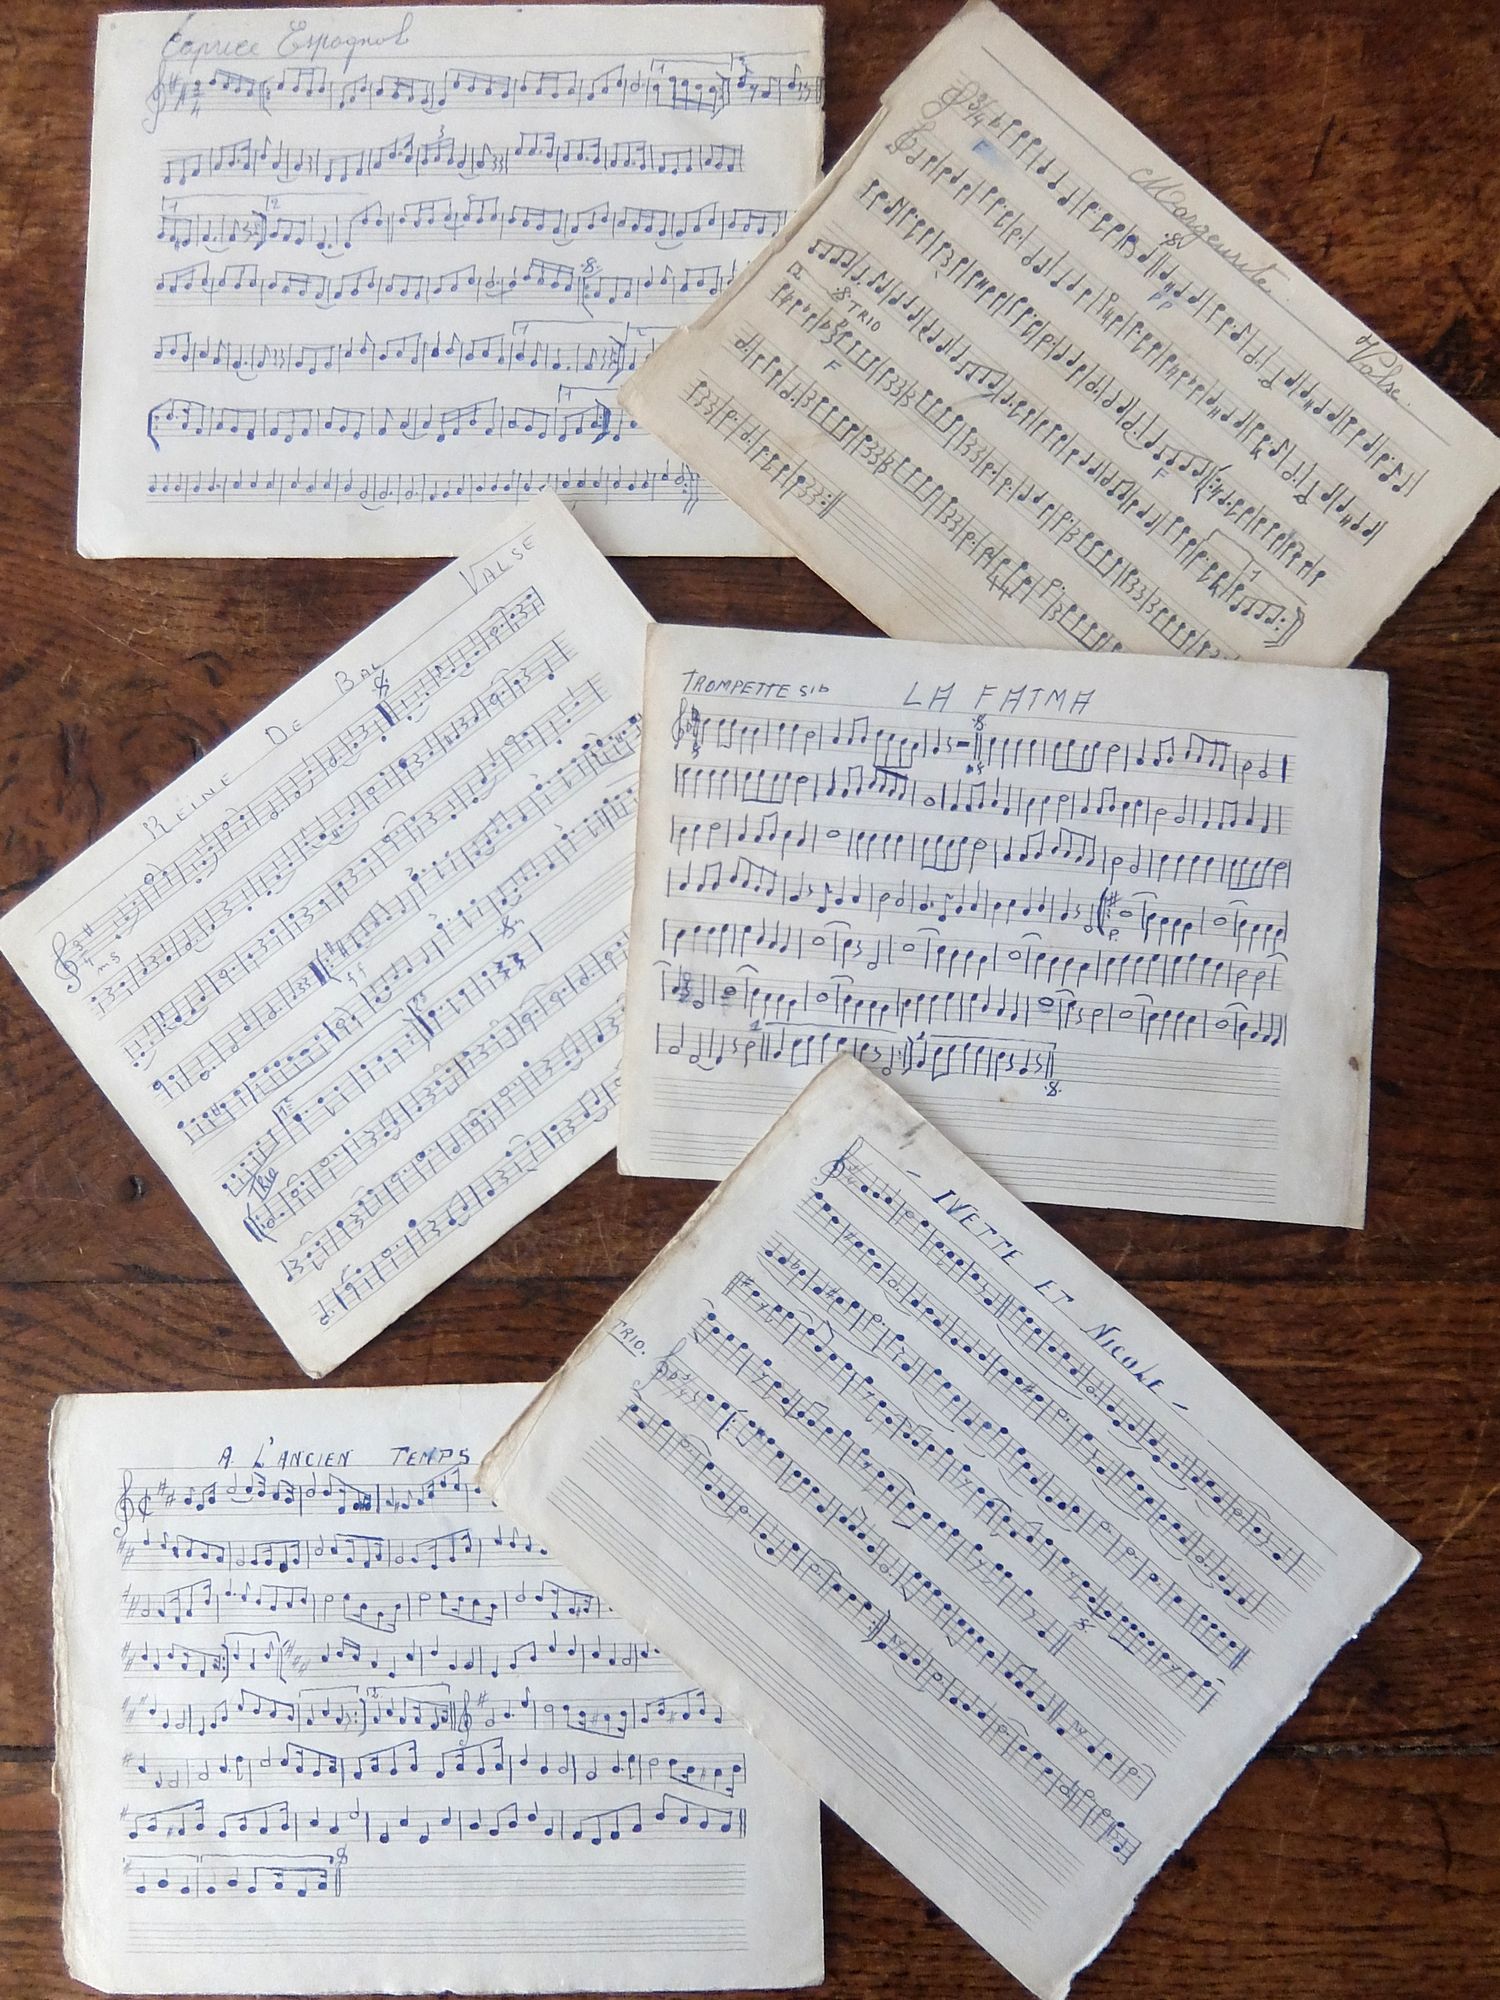 Caprice Espagnol
Marguerite.
Valse.
F
PP
TRIO
F
F
1
2
3
REINE DE BAL VALSE
mf
ff
Trio
TROMPETTE SIb LA FATMA
P.
1
- IVETTE ET NICOLE -
TRIO.
A L'ANCIEN TEMPS